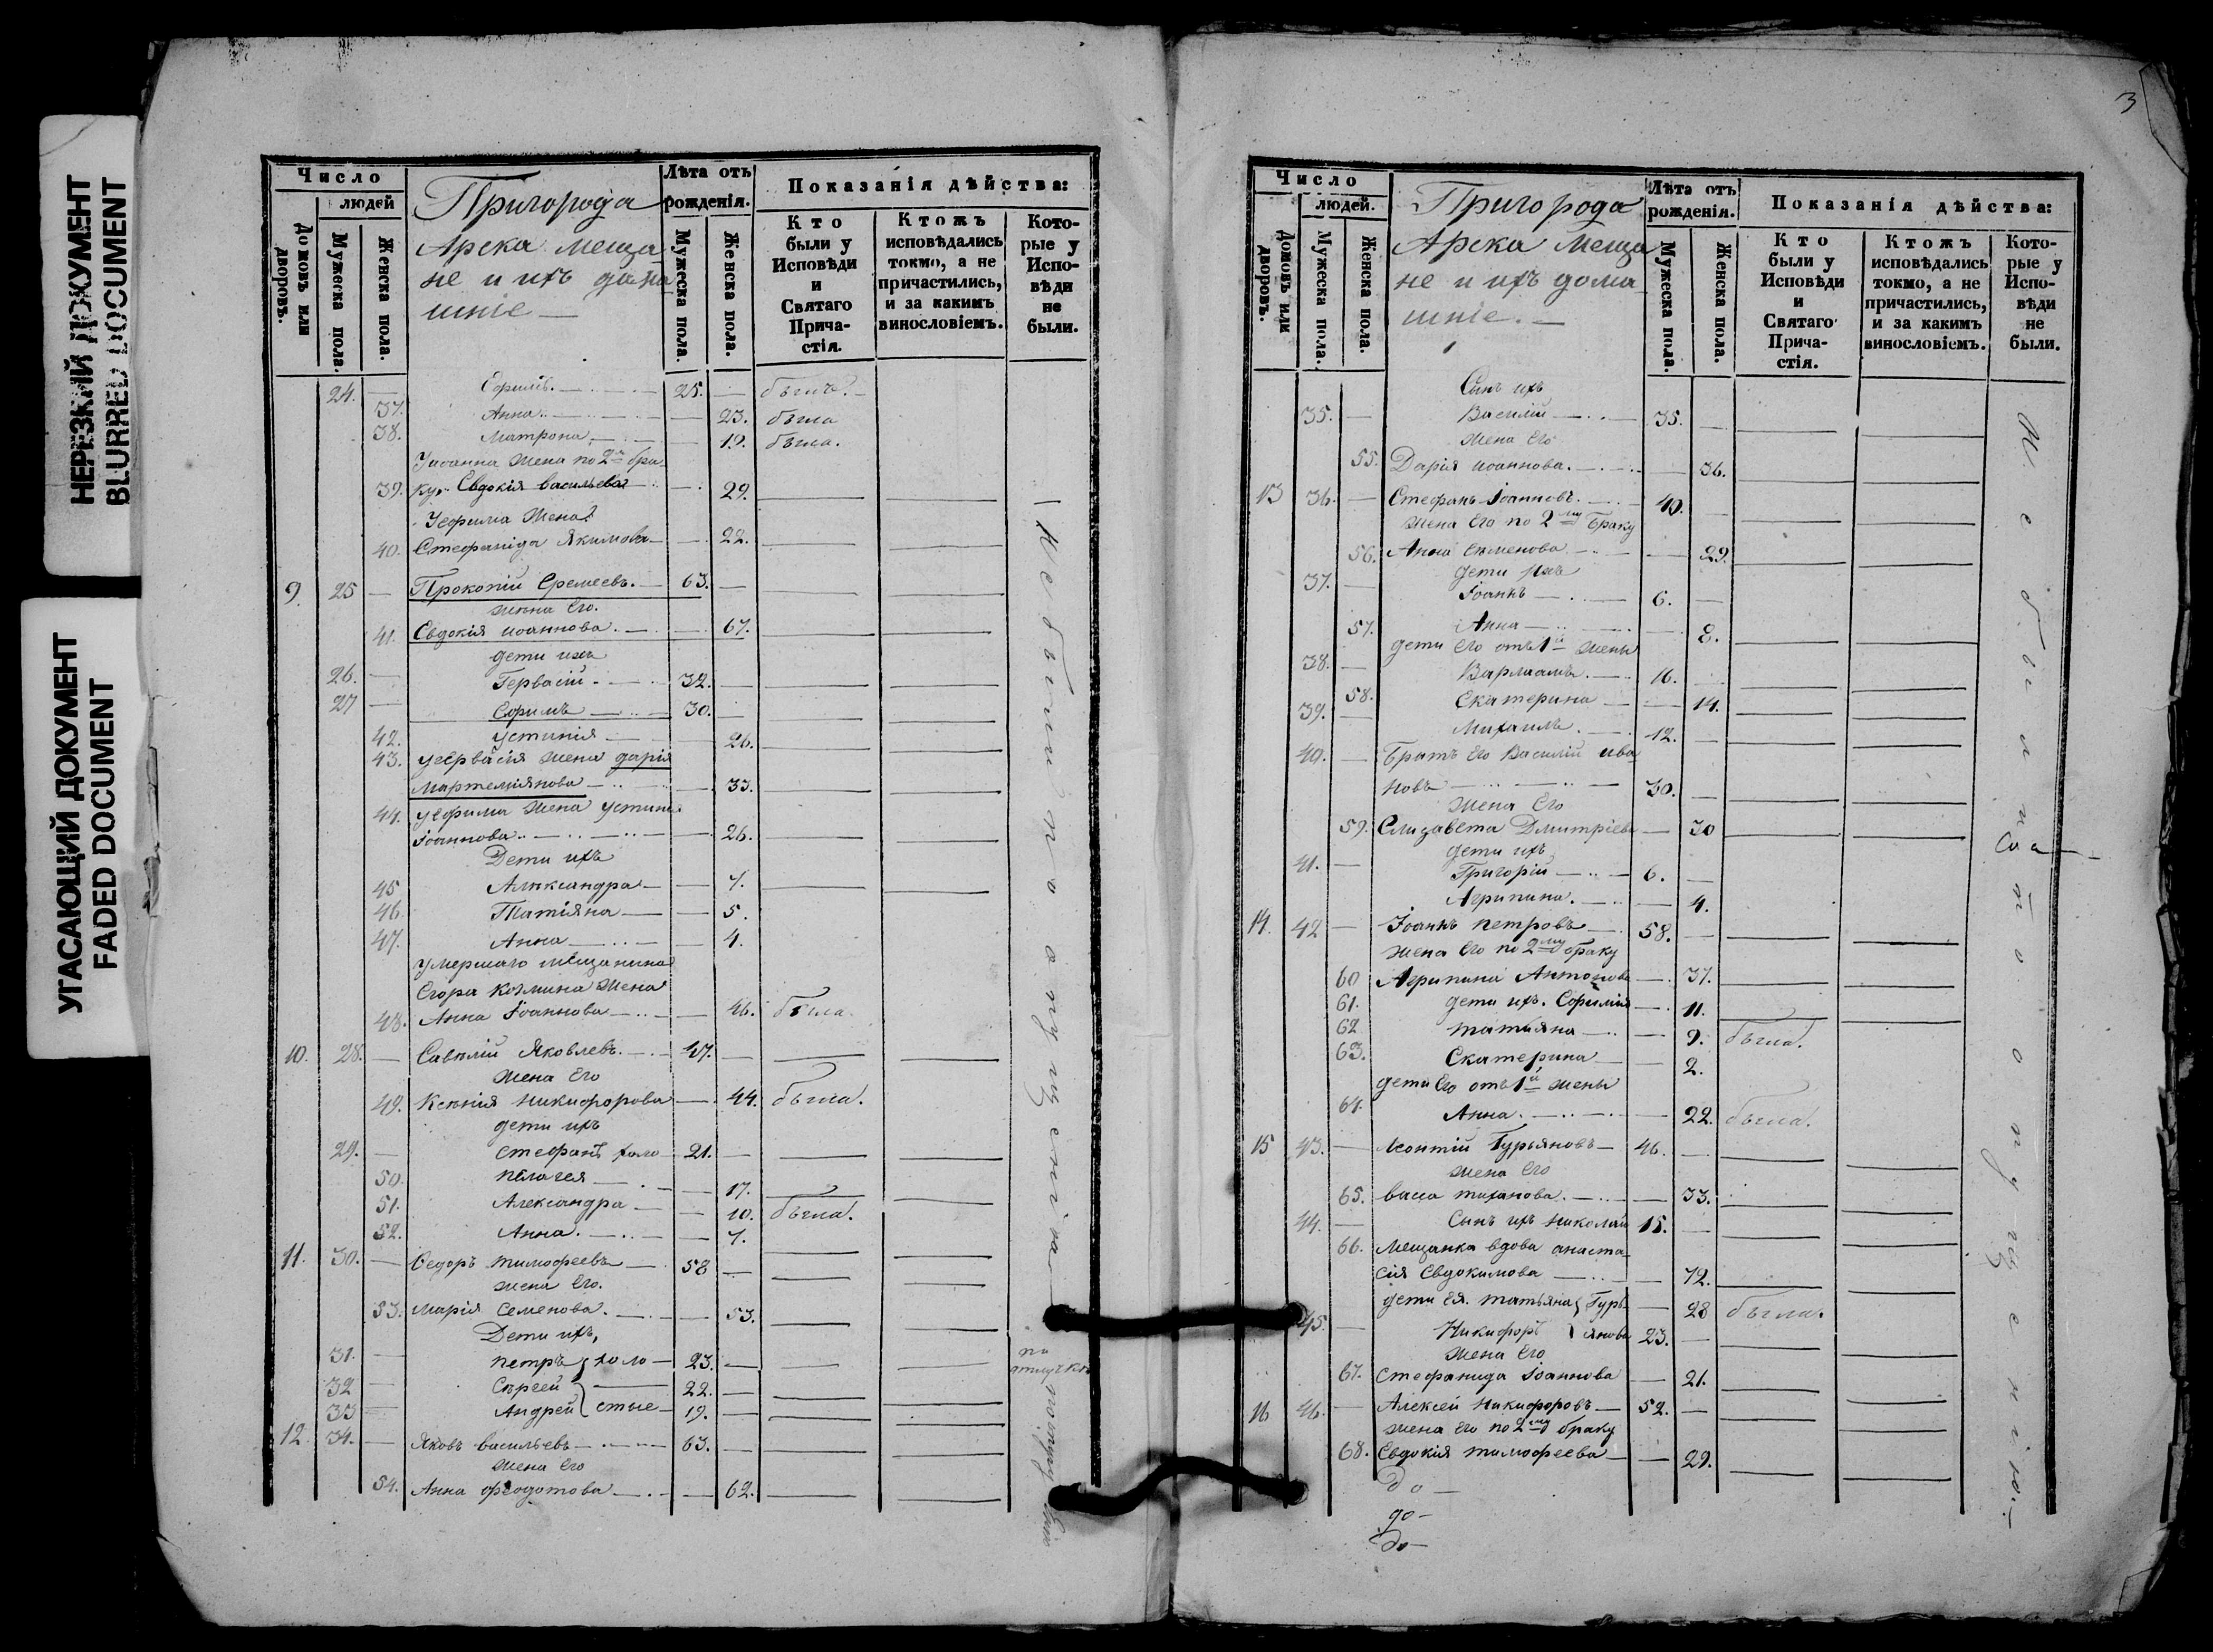 НЕРЕЗКИЙ ДОКУМЕНТ
BLURRED DOCUMENT
УГАСАЮЩИЙ ДОКУМЕНТ
FADED DOCUMENT
Число
людей
Домовъ или дворовъ.
Мужеска пола.
Женска пола.
Пригорода
Арска меща
не и ихъ дома
шніе —
Лѣта отъ
рожденія.
Мужеска пола.
Женска пола.
Показанія дѣйства:
Кто
были у
Исповѣди
и
Святаго
Прича-
стія.
Ктожъ
исповѣдались
токмо, а не
причастились,
и за какимъ
винословіемъ.
Кото-
рые у
Испо-
вѣди
не
были.
24. — Ефимъ. — 25. — былъ.
37. Анна. — 23. была
38. Матрона — 19. была.
Уіоанна жена по 2му бра
39. ку. Евдокія васильева — 29.
Уефима жена
40. Стефанида Якимова — 22.
9. 25 — Прокопій Еремеевъ. — 63. —
жена его.
41. Евдокія иоаннова. — 67.
дети ихъ
26. — Гервасій. — 32. —
27 — Ефимъ — 30. —
42. устинія — 26.
43. угервасія жена дарія
мартеміянова — 33.
44. уефима жена устинія
іоаннова — 26.
Дети ихъ
45 Александра — 7.
46. Татіяна — 5.
47. Анна — 4.
умершаго мещанина
Егора козмина жена
48. Анна Іоаннова — 46. была.
10. 28. — Савелій Яковлевъ. — 47. —
жена его
49. Ксенія никифорова — 44. была.
дети ихъ
29. — стефанъ холо 21. —
50. пелагея — 17.
51. Александра — 10. была.
52. Анна. — 7.
11. 30. — Федоръ тимофеевъ — 58 —
жена его.
53. марія семенова. — 53.
Дети ихъ,
31. — петръ холо — 23. —
32 — Сергей — 22. —
33 — Андрей стые — 19. —
12. 34. — Яковъ васильевъ — 63. —
жена его
54. Анна феодотова — 62.
Небыли по опущенію
по
отлучке
3
Число
людей.
Домовъ или дворовъ.
Мужеска пола.
Женска пола.
Пригорода
Арска меща
не и ихъ дома
шніе. —
Лѣта отъ
рожденія.
Мужеска пола.
Женска пола.
Показанія дѣйства:
Кто
были у
Исповѣди
и
Святаго
Прича-
стія.
Ктожъ
исповѣдались
токмо, а не
причастились,
и за какимъ
винословіемъ.
Кото-
рые у
Испо-
вѣди
не
были.
Сынъ ихъ
35. — Василій — 35. —
жена его
55. Дарія иоаннова. — 36.
13 36. — Стефанъ Іоанновъ. — 40. —
жена его по 2му браку
56. Анна семенова — 29.
дети ихъ
37. — Іоаннъ — 6. —
57. Анна — 8.
дети его отъ 1й жены
38. — Варлаамъ. — 16. —
58. Екатерина — 14.
39. — Михаилъ. — 12. —
40. — Братъ его Василій ива
новъ — 30. —
жена его
59. Елизавета Дмитріева — 30
дети ихъ
41. — Григорій — 6. —
Агрипина. — 4.
14. 42 — Іоаннъ петровъ — 58. —
жена его по 2му браку
60 Агрипина Антонова — 37.
61. дети ихъ. Ефимия — 11.
62 татьяна — 9. была.
63. Екатерина — 2.
дети его отъ 1й жены
64. Анна. — 22. была.
15 43. — Леонтій Гурьяновъ — 46. —
жена его
65. васса — 33.
44. — Сынъ ихъ николай 15. —
66. мещанка вдова анаста
сія Евдокимова — 72.
дети ея. татьяна Гурь — 28 была.
45. — Никифоръ янова 23. —
жена его
67. стефанида Іоаннова — 21.
16 46. — Алексей никифоровъ — 52. —
жена его по 2му браку
68. Евдокия тимофеева — 29.
до —
до —
до —
Небыли по опущенію. —